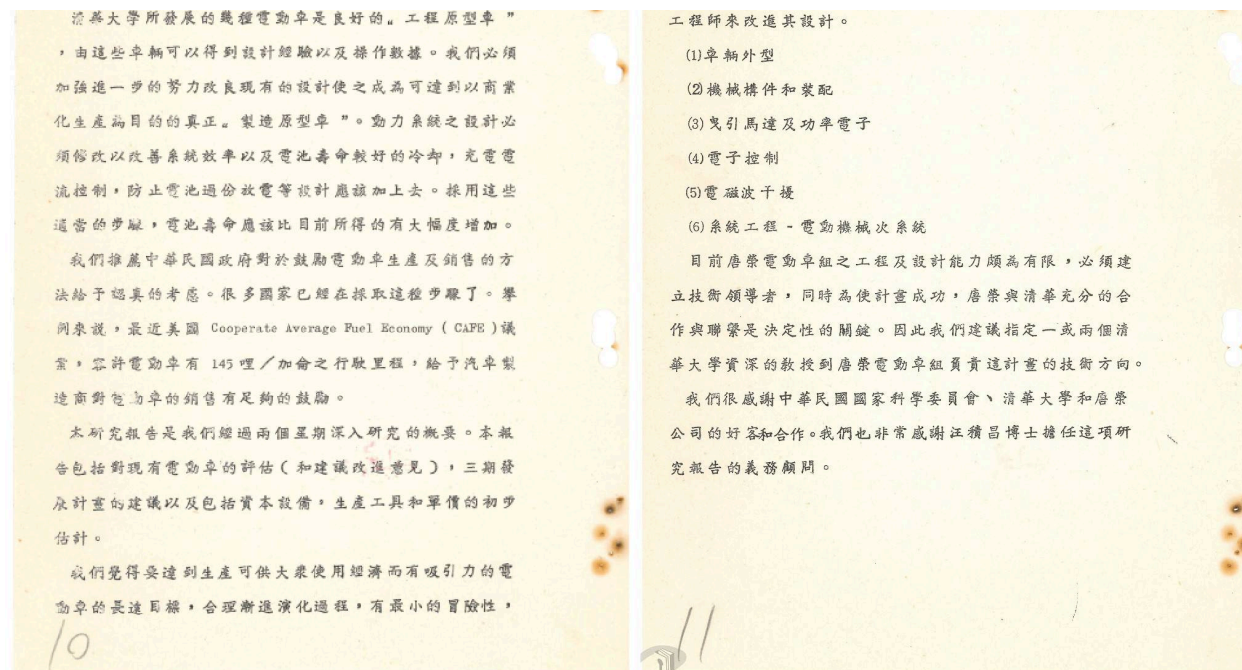 清華大學所發展的幾種電動車是良好的〝工程原型車〞
，由這些車輛可以得到設計經驗以及操作數據。我們必須
加強進一步的努力改良現有的設計使之成為可達到以商業
化生產為目的的真正〝製造原型車〞。動力系統之設計必
須修改以改善系統效率以及電池壽命較好的冷却，充電電
流控制，防止電池過份放電等設計應該加上去。採用這些
適當的步驟，電池壽命應該比目前所得的有大幅度增加。
我們推薦中華民國政府對於鼓勵電動車生產及銷售的方
法給予認真的考慮。很多國家已經在採取這種步驟了。舉
例來說，最近美國 Cooperate Average Fuel Economy ( CAFE ) 議
案，容許電動車有 145 哩／加侖之行駛里程，給予汽車製
造商對電動車的銷售有足夠的鼓勵。
本研究報告是我們經過兩個星期深入研究的概要。本報
告包括對現有電動車的評估（和建議改進意見），三期發
展計畫的建議以及包括資本設備，生產工具和單價的初步
估計。
我們覺得要達到生產可供大衆使用經濟而有吸引力的電
動車的長遠目標，合理漸進演化過程，有最小的冒險性，
10
工程師來改進其設計。
(1)車輛外型
(2)機械構件和裝配
(3)曳引馬達及功率電子
(4)電子控制
(5)電磁波干擾
(6)系統工程 - 電動機械次系統
目前唐榮電動車組之工程及設計能力頗為有限，必須建
立技術領導者，同時為使計畫成功，唐榮與清華充分的合
作與聯繫是決定性的關鍵。因此我們建議指定一或兩個清
華大學資深的教授到唐榮電動車組負責這計畫的技術方向。
我們很感謝中華民國國家科學委員會、清華大學和唐榮
公司的好客和合作。我們也非常感謝汪積昌博士擔任這項研
究報告的義務顧問。
11